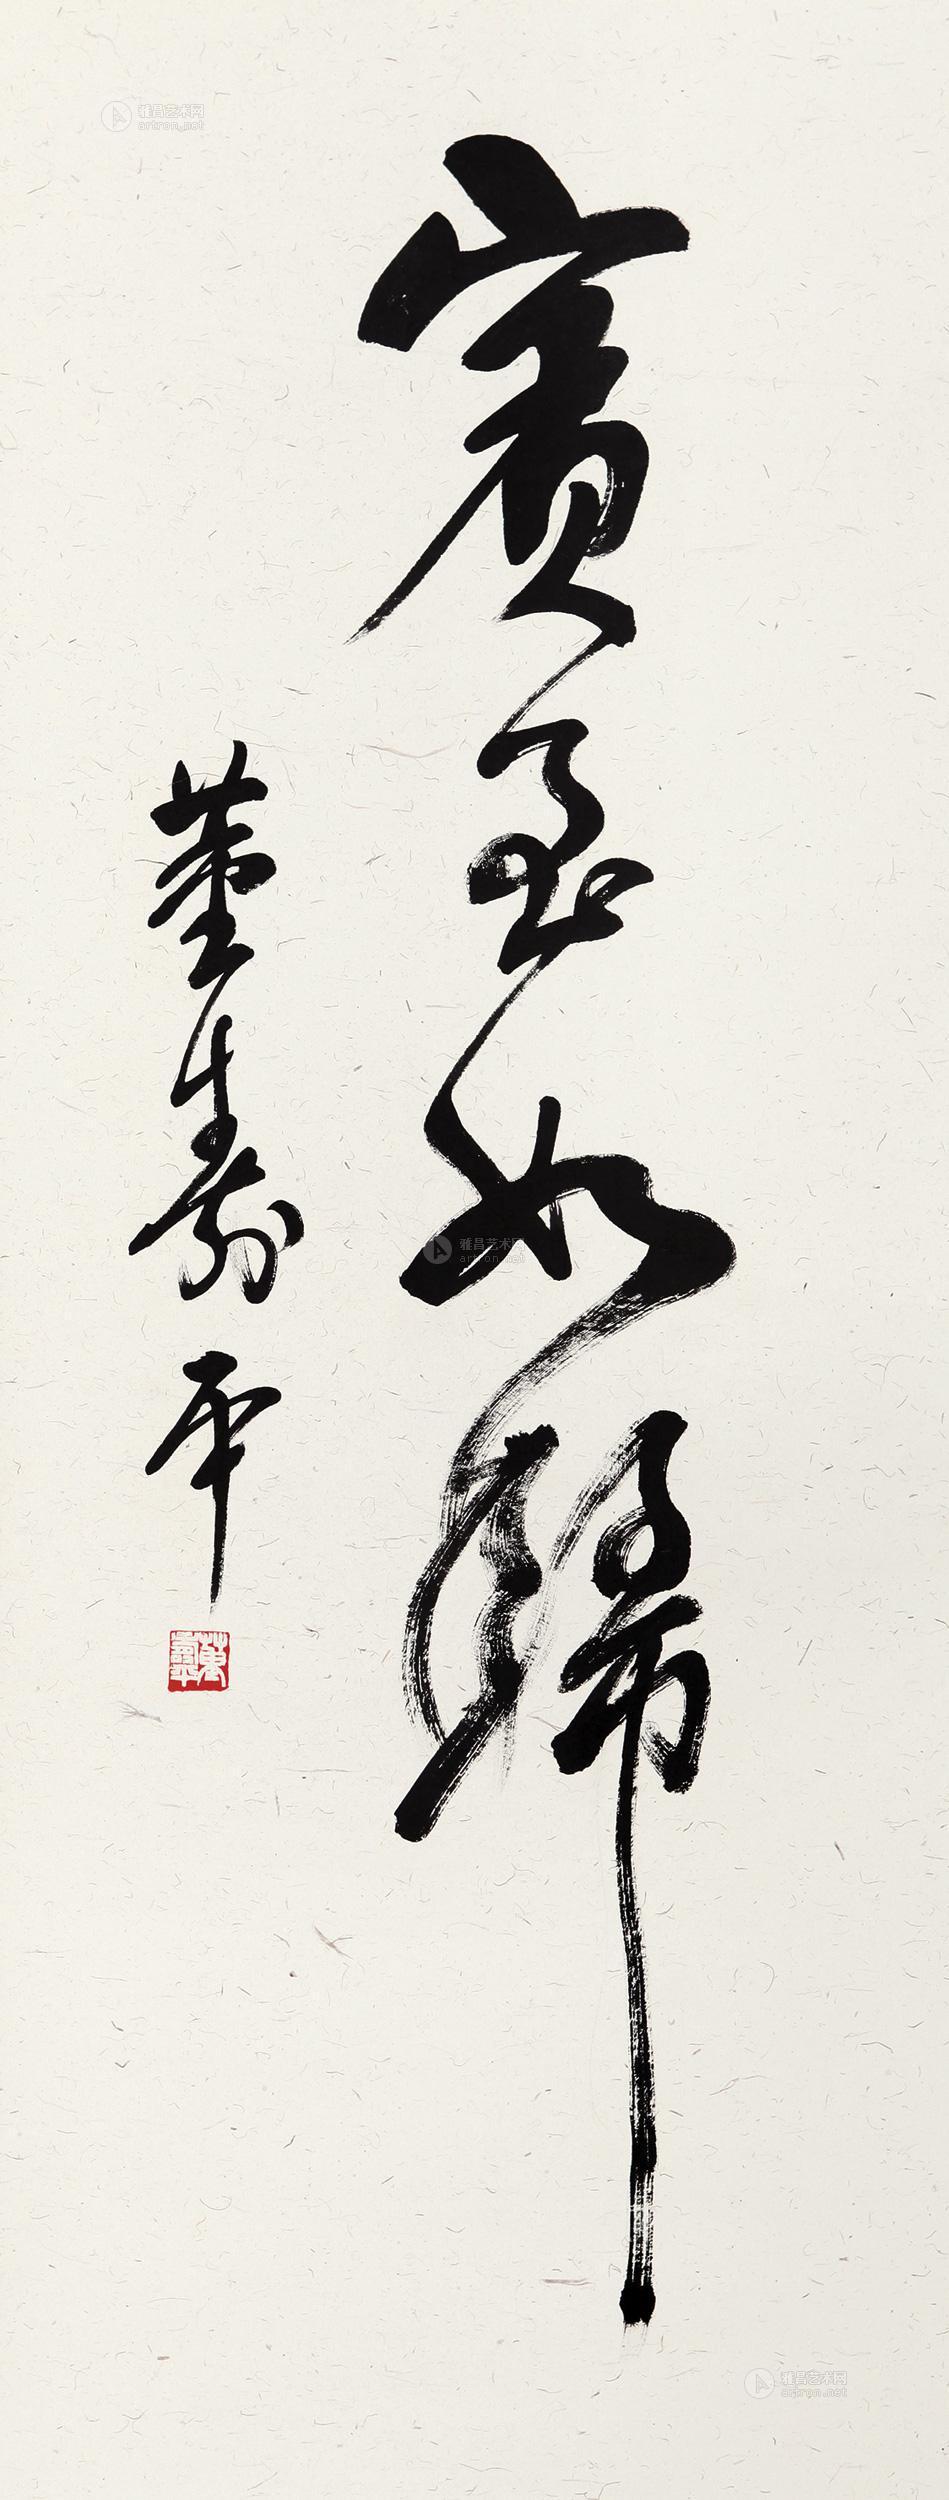 賓至如歸
董壽平
董壽平
雅昌艺术网
artron.net
雅昌艺术网
artron.net
雅昌艺术网
artron.net